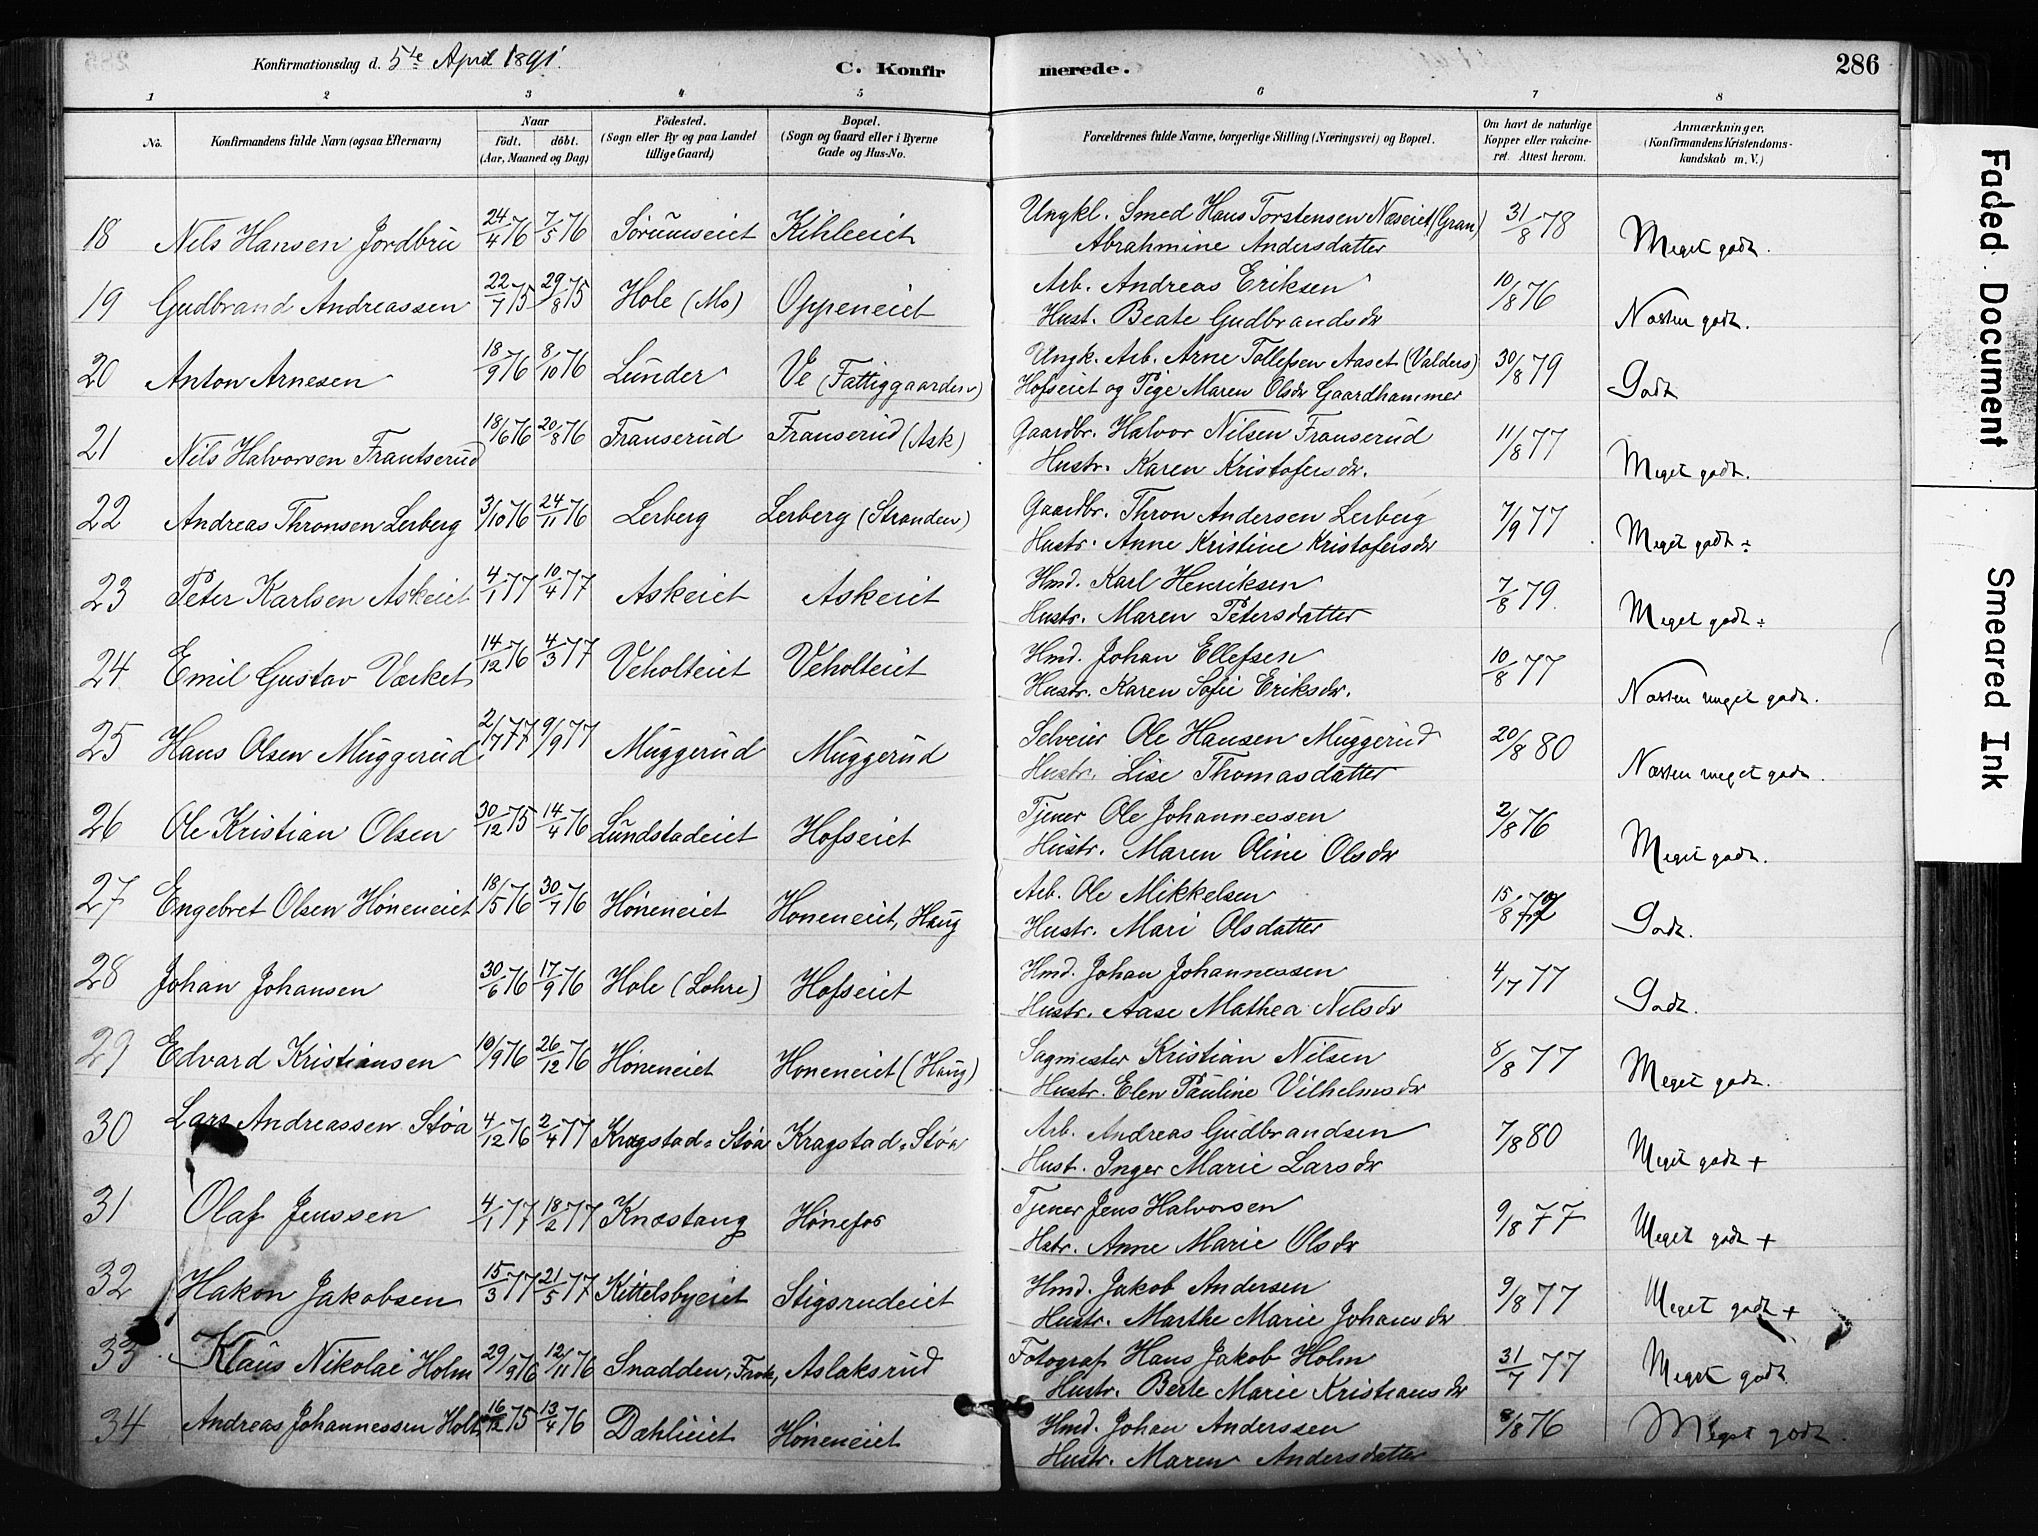 Konfirmationsdag d. 5te April 1891. C. Konfirmerede. 286
1 2 3 4 5 6 7 8
No. Konfirmandens fulde Navn (ogsaa Efternavn) Naar født. døbt. (Aar, Maaned og Dag) Fødested. (Sogn eller By og paa Landet tillige Gaard) Bopæl. (Sogn og Gaard eller i Byerne Gade og Hus-No. Forældrenes fulde Navne, borgerlige Stilling (Næringsvei) og Bopæl. Om havt de naturlige Kopper eller vakcineret. Attest herom. Anmærkninger. (Konfirmandens Kristendomskundskab m. V.)
18 Nils Hansen Jordbru 24/4 76 7/5 76 Sørumseiet Kihleeiet Ungkl. Smed Hans Torstensen Næseiet (Gran) 31/8 78 Meget godt.
Abrahmine Andersdatter
19 Gudbrand Andreassen 22/7 75 29/8 75 Hole (Mo) Oppeneiet Arb. Andreas Eriksen 10/8 76 Næsten godt.
Hust. Beate Gudbrandsdr
20 Anton Arnesen 18/9 76 8/10 76 Lunder Ve (Fattiggaarden) Ungk. Arb. Arne Tollefsen Aaset (Valders) 30/8 79 Godt
Hofseiet og Pige Maren Olsdr Gaardhammer
21 Nils Halvorsen Frantserud 18/6 76 20/8 76 Franserud Franserud (Ask) Gaardbr. Halvor Nilsen Franserud 11/8 77 Meget godt.
Hustr. Karen Kristofersdr.
22 Andreas Thronsen Lerberg 3/10 76 24/11 76 Lerberg Lerberg (Stranden) Gaardbr. Thron Andersen Lerberg 7/9 77 Meget godt ÷
Hustr. Anne Kristine Kristofersdr
23 Peter Karlsen Askeiet 4/1 77 10/4 77 Askeiet Askeiet Hmd. Karl Henriksen 7/8 79. Meget godt ÷
Hustr. Maren Petersdatter
24 Emil Gustav Værket 14/12 76 4/3 77 Veholteiet Veholteiet Hmd. Johan Ellefsen 10/8 77 Næsten meget godt.
Hustr. Karen Sofie Eriksdr.
25 Hans Olsen Muggerud. 2/7 77 9/9 77 Muggerud Muggerud Selveier Ole Hansen Muggerud 20/8 80 Næsten meget godt.
Hustr. Lise Thomasdatter
26 Ole Kristian Olsen 30/12 75 14/4 76 Lundstadeiet Hofseiet Tjener Ole Johannessen 2/8 76 Meget godt.
Hustr. Maren Oline Olsdr
27 Engebret Olsen Høneneiet 18/5 76 30/7 76 Høneneiet Høneneiet, Haug Arb. Ole Mikkelsen 15/8 Godt.
Hustr. Mari Olsdatter
28 Johan Johansen 30/6 76 17/9 76 Hole (Lohre) Hofseiet Hmd. Johan Johannessen 4/7 77 Godt.
Hustr. Aase Mathea Nilsdr
29 Edvard Kristiansen 10/9 76 26/12 76 Høneneiet Høneneiet (Haug) Sagmester Kristian Nilsen 8/8 77 Meget godt.
Hustr. Elen Pauline Vilhelmsdr
30 Lars Andreassen Støa 4/12 76 2/4 77 Kragstad-Støa Kragstad-Støa Arb. Andreas Gudbrandsen 7/8 80 Meget godt +
Hust. Inger Marie Larsdr
31 Olaf Jenssen 4/1 77 18/2 77 Knæstang Hønefos Tjener Jens Halvorsen 9/8 77 Meget godt +
Hstr. Anne Marie Olsdr
32 Hakon Jakobsen 15/3 77 21/5 77 Kittelsbyeiet Stigsrudeiet Hmd. Jakob Andersen 9/8 77 Meget godt +
Hustr. Marthe Marie Johansdr
33 Klaus Nikolai Holm 29/9 76 12/11 76 Snadden, Aslaksrud Fotograf Hans Jakob Holm 31/7 77 Meget godt.
Hustr. Berte Marie Kristiansdr
34 Andreas Johannessen Holt 16/12 75 13/4 76 Dæhlieiet Høneneiet Hmd. Johan Anderssen 8/8 76 Meget godt.
Hustr. Maren Andersdatter
Faded Document
Smeared Ink